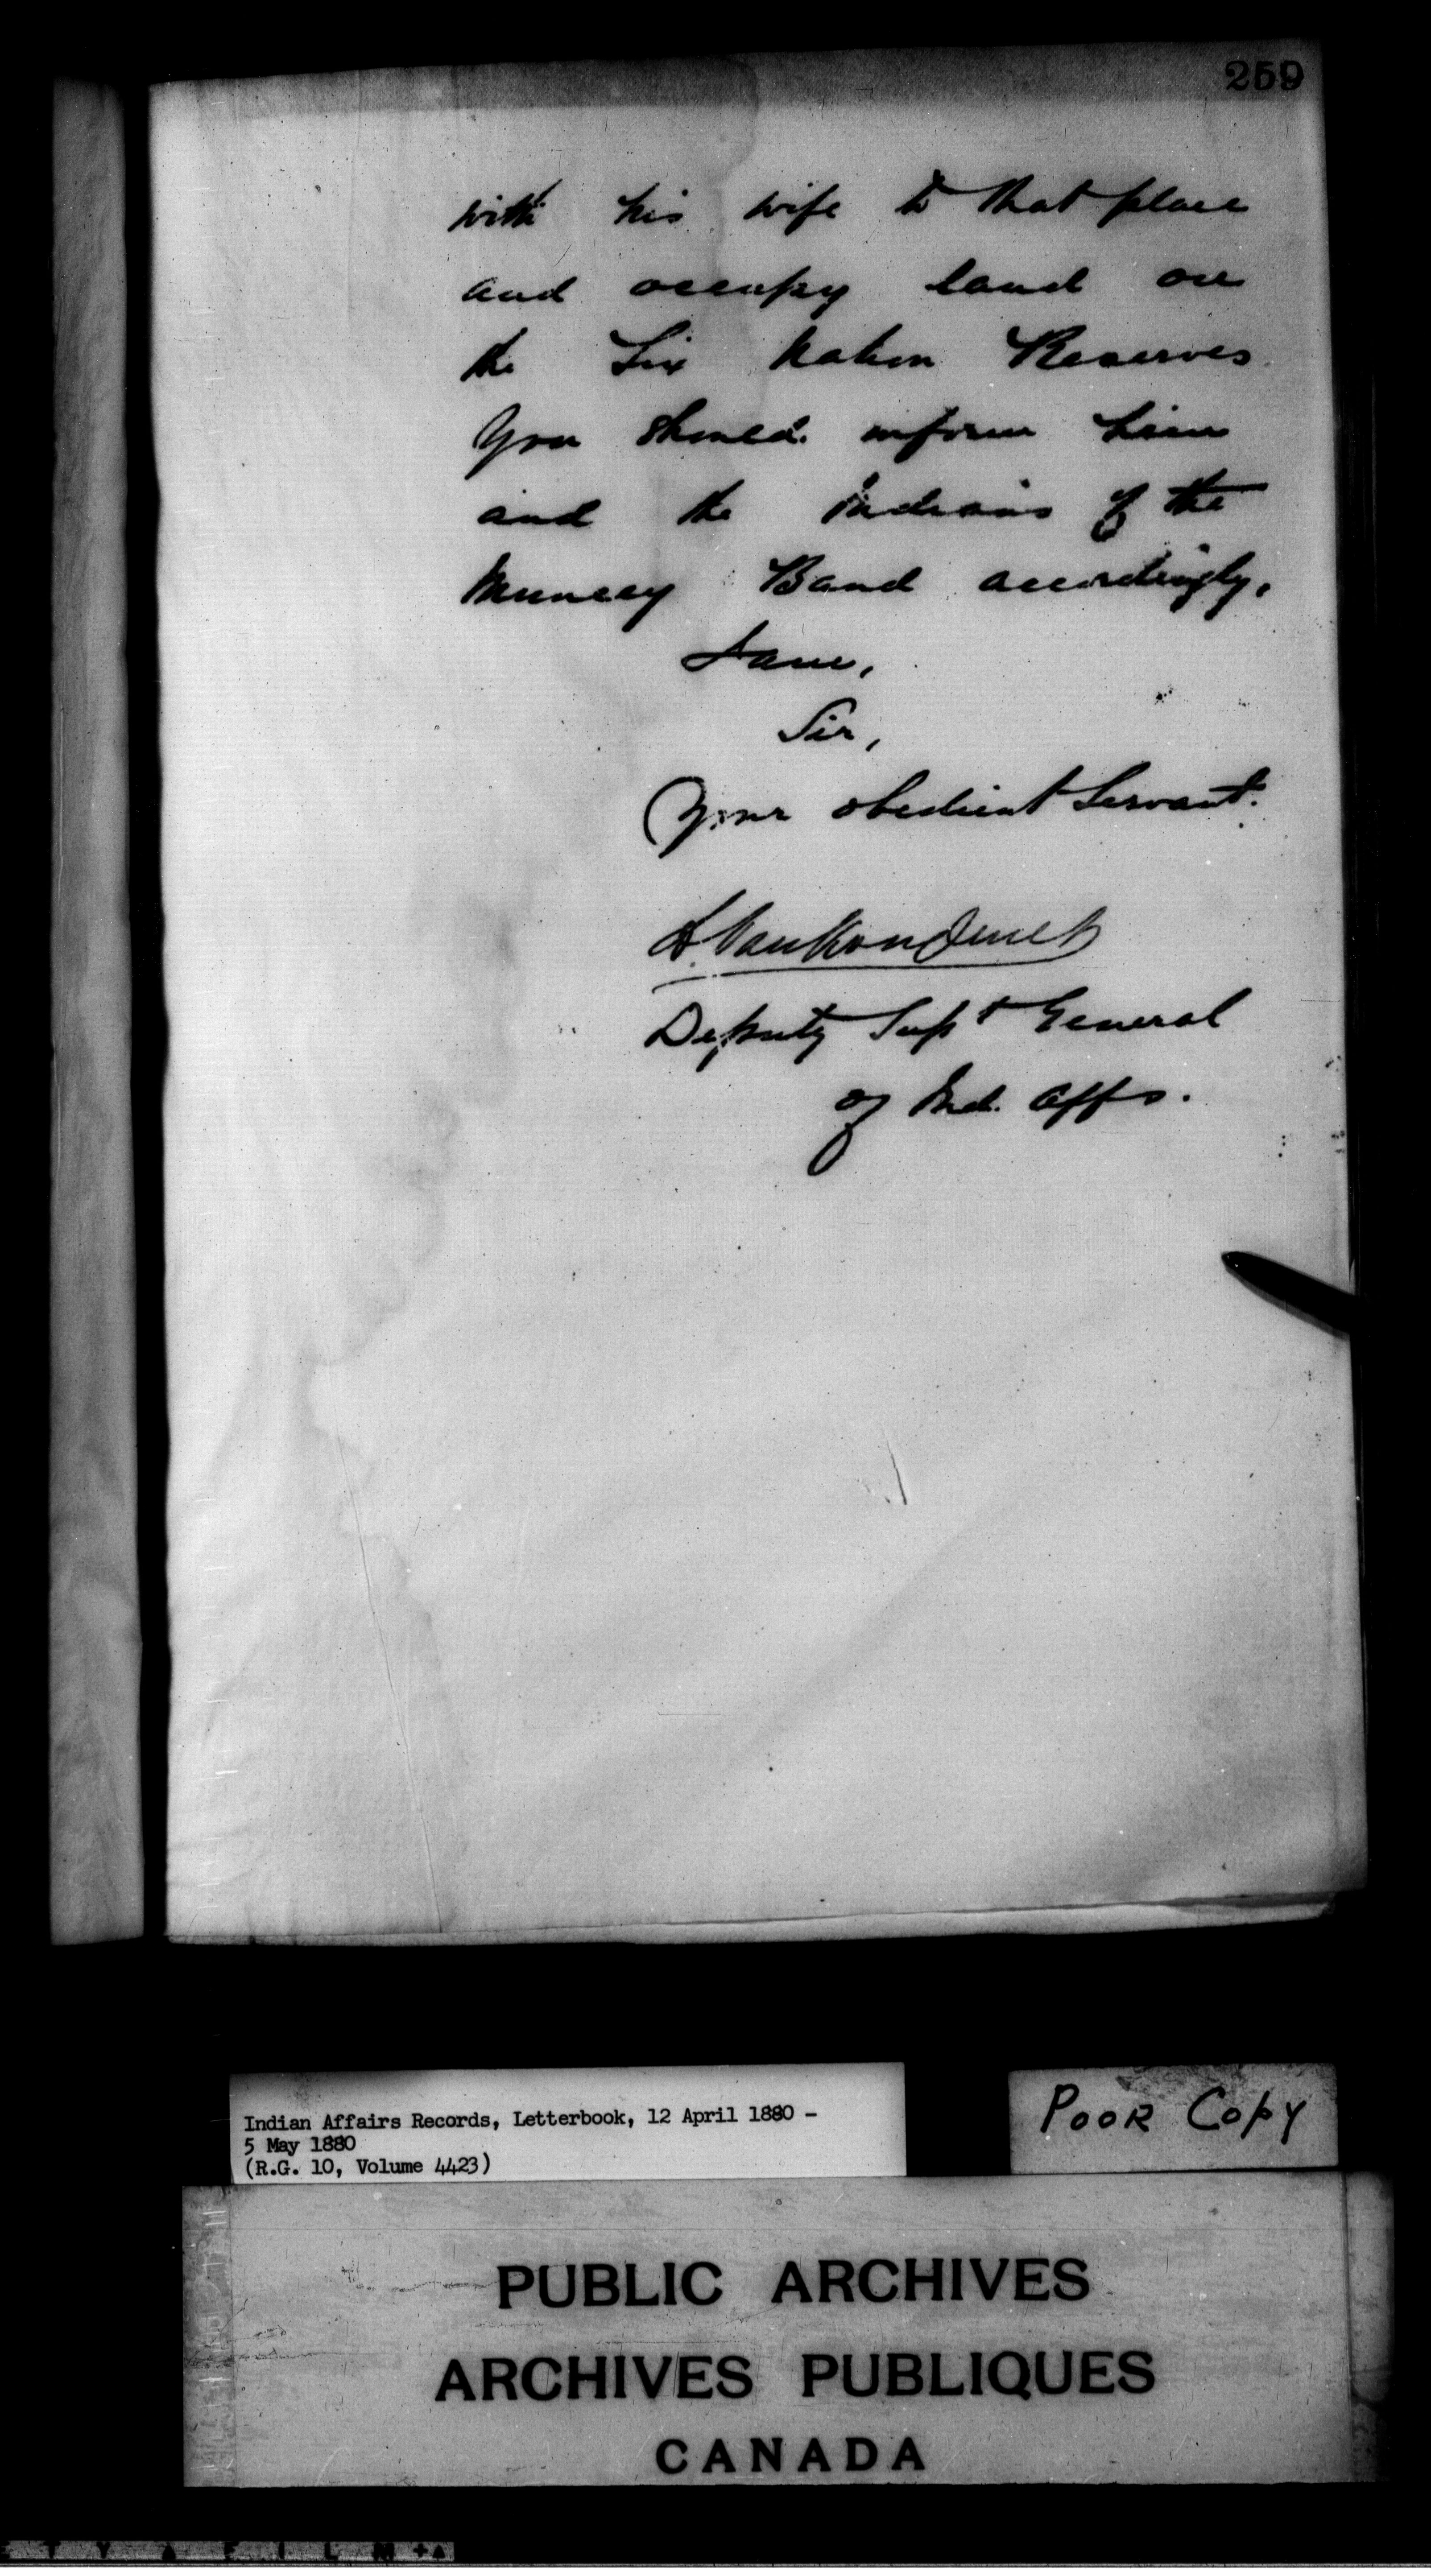 259
with his wife to that place
and occupy land on
the Six Nation Reserves
You should inform him
and the Indians of the
Muncey Band accordingly,
I am,
Sir,
Your obedient Servant.
L. VanKoughnet
Deputy Supt General
of Ind. Affs.
Indian Affairs Records, Letterbook, 12 April 1880 -
5 May 1880
(R.G. 10, Volume 4423)
POOR COPY
PUBLIC ARCHIVES
ARCHIVES PUBLIQUES
CANADA